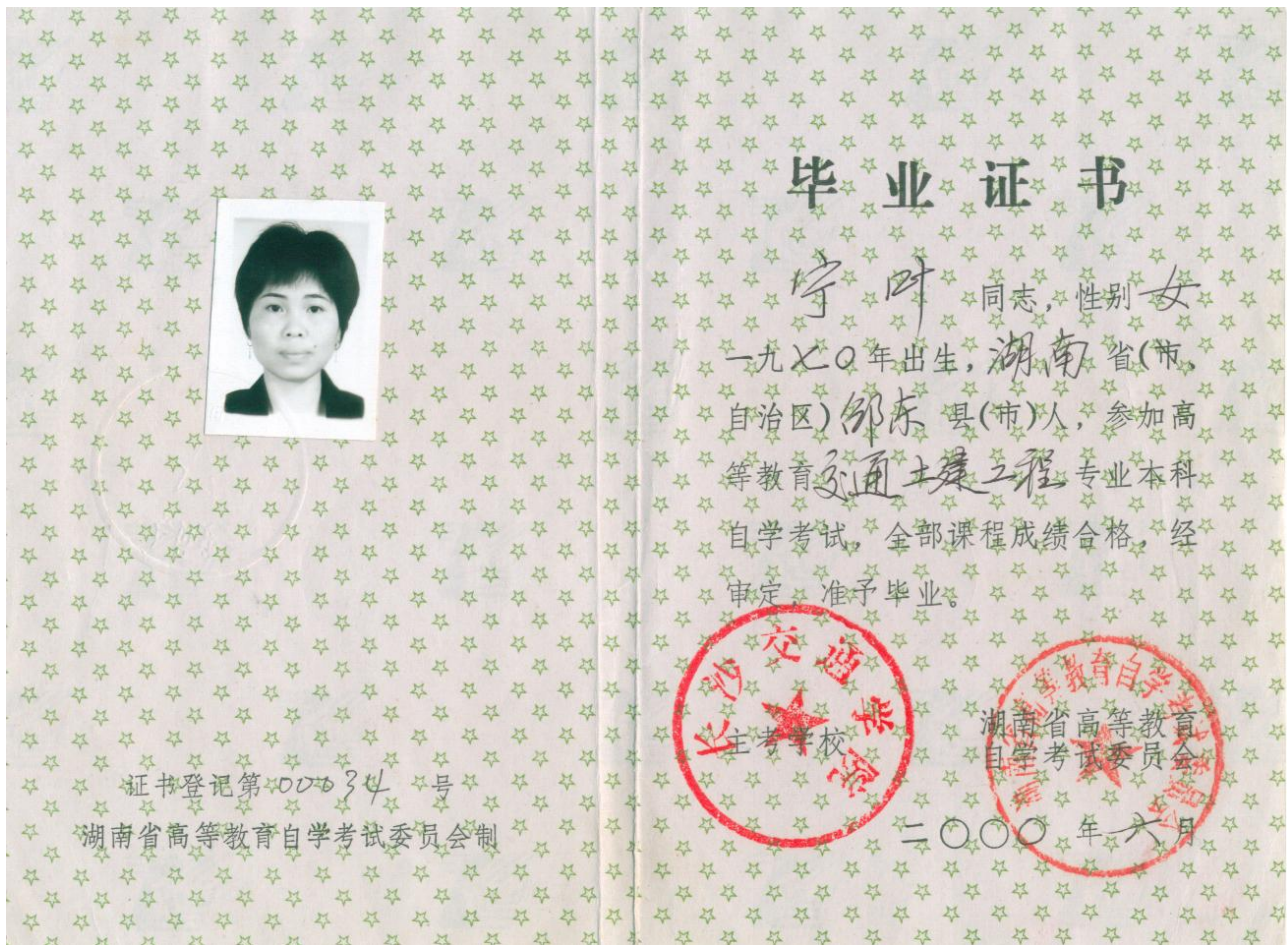 证书登记第000034号
湖南省高等教育自学考试委员会制
毕业证书
宁叶 同志，性别 女
一九七〇年出生，湖南 省(市、
自治区)邵东 县(市)人，参加高
等教育交通土建工程专业本科
自学考试，全部课程成绩合格，经
审定，准予毕业。
长沙交通学院
主考学校
湖南省高等教育自学考试委员会
湖南省高等教育
自学考试委员会
二〇〇〇 年 六 月